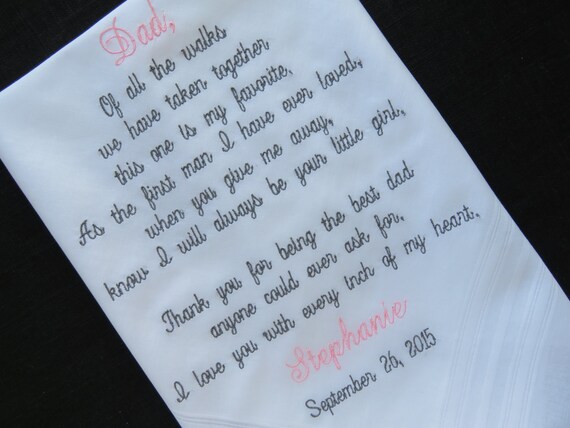 Dad,
Of all the walks
we have taken together
this one is my favorite.
As the first man I have ever loved,
when you give me away,
know I will always be your little girl,
Thank you for being the best dad
anyone could ever ask for.
I love you with every inch of my heart.
Stephanie
September 26, 2015